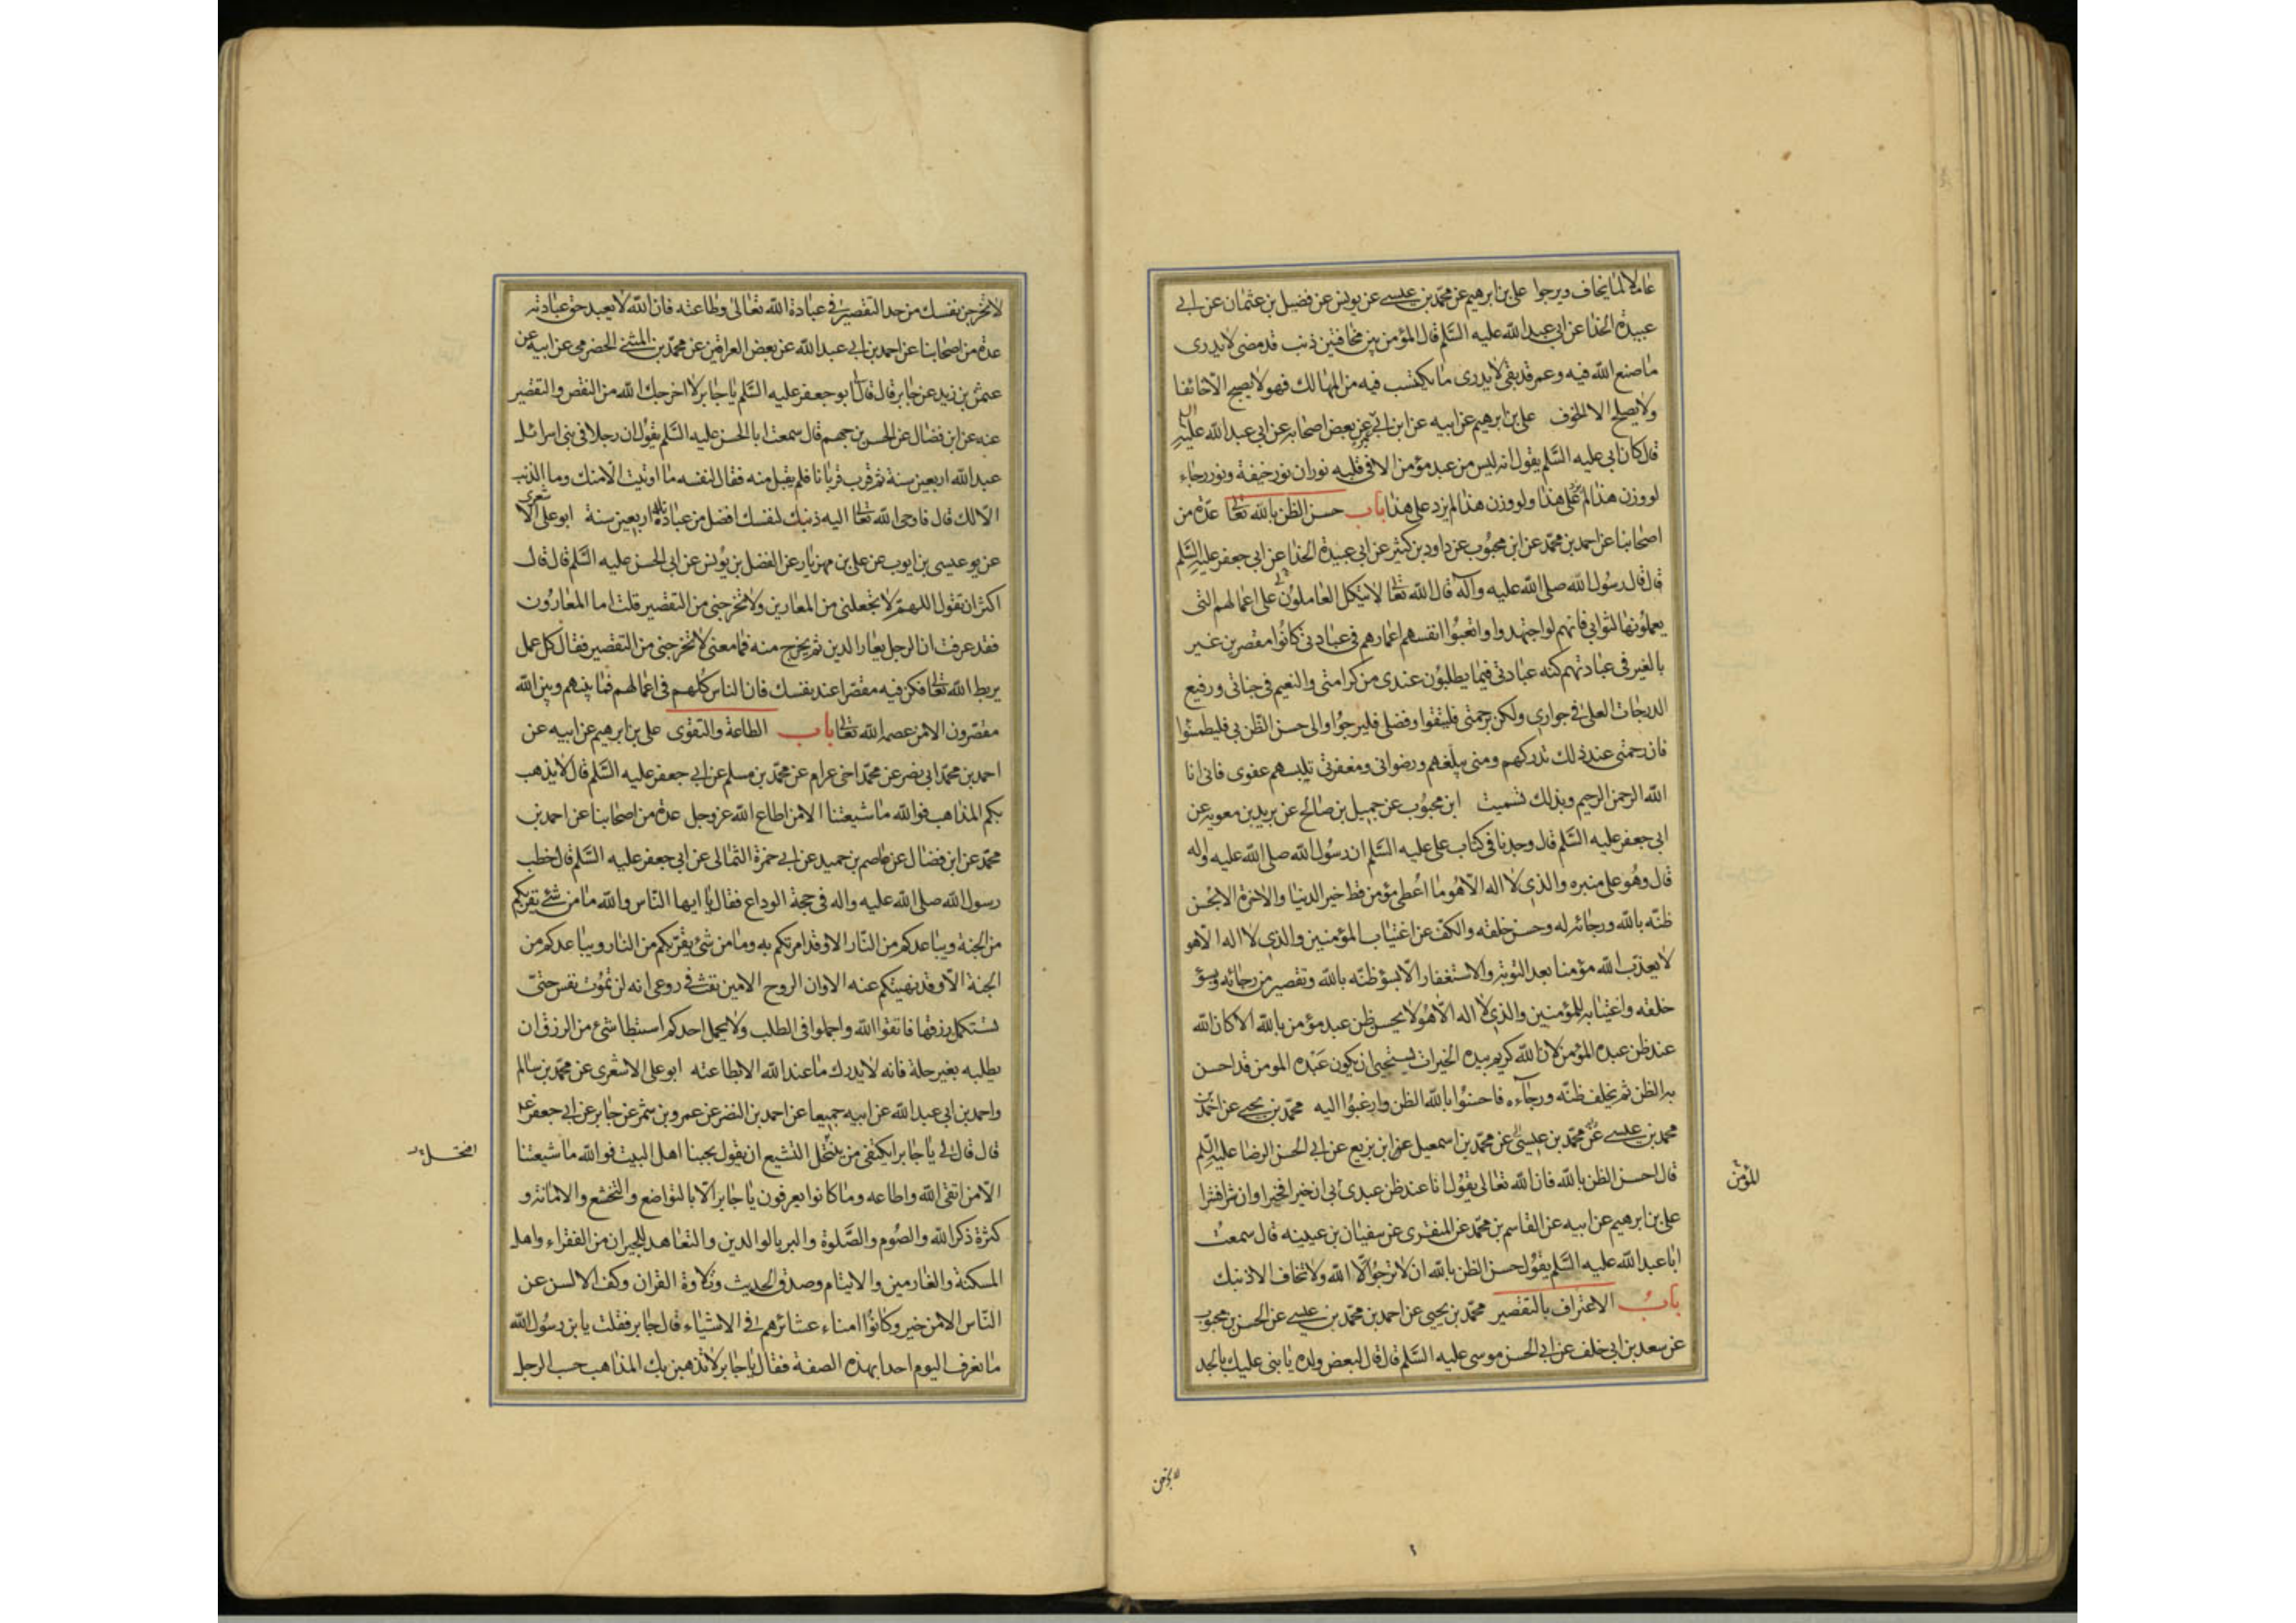 عاملا لما يخاف ويرجوا علي بن ابرهيم عن محمد بن عيسى عن يونس عن فضيل بن عثمان عن ابي
عبيدة الحذا عن ابي عبد الله عليه السلم قال المؤمن بين مخافتين ذنب قد مضى لا يدرى
ما صنع الله فيه وعمر قد بقى لا يدرى ما يكتسب فيه من المهالك فهو لا يصبح الا خائفا
ولا يصلحه الا الخوف علي بن ابرهيم عن ابيه عن ابن ابي عمير عن بعض اصحابه عن ابي عبد الله عليه السلم
قال كان ابي عليه السلم يقول انه ليس من عبد مؤمن الا فى قلبه نوران نور خيفة ونور رجاء
لو وزن هذا لم يزد على هذا ولو وزن هذا لم يزد على هذا باب حسن الظن بالله تعالى عدة من
اصحابنا عن احمد بن محمد عن ابن محبوب عن داود بن كثير عن ابي عبيدة الحذا عن ابي جعفر عليه السلم
قال قال رسول الله صلى الله عليه وآله قال الله تعالى لا يتكل العاملون لي على اعمالهم التى
يعملونها لثوابي فانهم لو اجتهدوا واتعبوا انفسهم اعمارهم فى عبادتى كانوا مقصرين غير
بالغير فى عبادتهم كنه عبادتى فيما يطلبون عندى من كرامتى والنعيم فى جناتى ورفيع
الدرجات العلى في جواري ولكن برحمتى فليثقوا وفضلى فليرجوا والى حسن الظن بي فليطمئنوا
فان رحمتى عند ذلك تدركهم ومنى يبلغهم ورضوانى ومغفرتى تلبسهم عفوى فانى انا
الله الرحمن الرحيم وبذلك تسميت ابن محبوب عن جميل بن صالح عن بريد بن معويه عن
ابى جعفر عليه السلم قال وجدنا فى كتاب على عليه السلم ان رسول الله صلى الله عليه واله
قال وهو على منبره والذي لا اله الا هو ما اعطى مؤمن قط خير الدنيا والاخرة الا بحسن
ظنه بالله ورجائه له وحسن خلقه والكف عن اغتياب المؤمنين والذي لا اله الا هو
لا يعذب الله مؤمنا بعد التوبة والاستغفار الا بسؤ ظنه بالله وتقصير من رجائه وسؤ
خلقه واغتيابه للمؤمنين والذي لا اله الا هو لا يحسن ظن عبد مؤمن بالله الا كان الله
عند ظن عبده المؤمن لان الله كريم بيده الخيرات يستحيى ان يكون عبده المومن قد احسن
به الظن ثم يخلف ظنه ورجآءه فاحسنوا بالله الظن وارغبوا اليه محمد بن يحيى عن احمد بن
محمد بن عيسى عن محمد بن عيسى عن محمد بن اسمعيل عن ابن بزيع عن ابي الحسن الرضا عليه السلم
قال احسن الظن بالله فان الله تعالى يقول انا عند ظن عبدى بي ان خيرا فخيرا وان شرا فشرا
المؤمن
علي بن ابرهيم عن ابيه عن القاسم بن محمد عن المنقرى عن سفيان بن عيينه قال سمعت
ابا عبد الله عليه السلم يقول حسن الظن بالله ان لا ترجوا الا الله ولا تخاف الا ذنبك
باب الاعتراف بالتقصير محمد بن يحيى عن احمد بن محمد بن عيسى عن الحسن بن محبوب
عن سعد بن ابي خلف عن ابي الحسن موسى عليه السلم قال قال لبعض ولده يا بنى عليك بالجد
لا تخرجن
لا تخرجن نفسك من حد التقصير في عبادة الله تعالى وطاعته فان الله لا يعبد حق عبادته
عدة من اصحابنا عن احمد بن ابي عبد الله عن بعض العراقيين عن محمد بن المثنى الحضرمى عن ابيه عن
عثمن بن زيد عن جابر قال قال لى ابو جعفر عليه السلم يا جابر لا اخرجك الله من النقص والتقصير
عنه عن ابن فضال عن الحسن بن جهم قال سمعت ابا الحسن عليه السلم يقول ان رجلا فى بنى اسرائيل
عبد الله اربعين سنة ثم قرب قربانا فلم يقبل منه فقال لنفسه ما اوتيت الا منك وما الذنب
الا لك قال فاوحى الله تعالى اليه ذنبك لنفسك افضل من عبادتك اربعين سنة ابو على الاشعرى
عن يو عيسى بن ايوب عن على بن مهزيار عن الفضل بن يونس عن ابى الحسن عليه السلم قال قال
اكثر ان تقول اللهم لا تجعلنى من المعارين ولا تخرجنى من التقصير قلت اما المعارون
فقد عرفت ان الرجل يعار الدين ثم يخرج منه فما معنى لا تخرجنى من التقصير فقال كل عمل
يريد الله تعالى فكن فيه مقصرا عند نفسك فان الناس كلهم فى اعمالهم فيما بينهم وبين الله
مقصرون الا من عصمه الله تعالى باب الطاعة والتقوى علي بن ابرهيم عن ابيه عن
احمد بن محمد ابى نصر عن محمد اخى عرام عن محمد بن مسلم عن ابي جعفر عليه السلم قال لا يذهب
بكم المذاهب فوالله ما شيعتنا الا من اطاع الله عز وجل عدة من اصحابنا عن احمد بن
محمد عن ابن فضال عن عاصم بن حميد عن ابي حمزة الثمالى عن ابى جعفر عليه السلم قال خطب
رسول الله صلى الله عليه واله فى حجة الوداع فقال يا ايها الناس والله ما من شئ يقربكم
من الجنة ويباعدكم من النار الا وقد امرتكم به وما من شئ يقربكم من النار ويباعدكم من
الجنة الا وقد نهيتكم عنه الا وان الروح الامين نفث في روعى انه لن تموت نفس حتى
تستكمل رزقها فاتقوا الله واجملوا فى الطلب ولا يحمل احدكم استبطا شئ من الرزق ان
يطلبه بغير حله فانه لا يدرك ما عند الله الا بطاعته ابو على الاشعرى عن محمد بن سالم
واحمد بن ابى عبد الله عن ابيه جميعا عن احمد بن النضر عن عمرو بن شمر عن جابر عن ابي جعفر ع
قال قال لي يا جابر ايكتفى من ينتحل التشيع ان يقول بحبنا اهل البيت فوالله ما شيعتنا
الا من اتقى الله واطاعه وما كانوا يعرفون يا جابر الا بالتواضع والتخشع والامانة و
كثرة ذكر الله والصوم والصلوة والبر بالوالدين والتعاهد للجيران من الفقراء واهل
المسكنة والغارمين والايتام وصدق الحديث وتلاوة القران وكف الالسن عن
الناس الا من خير وكانوا امناء عشائرهم في الاشياء قال جابر فقلت يا بن رسول الله
ما نعرف اليوم احدا بهذه الصفة فقال يا جابر لا تذهبن بك المذاهب حسب الرجل